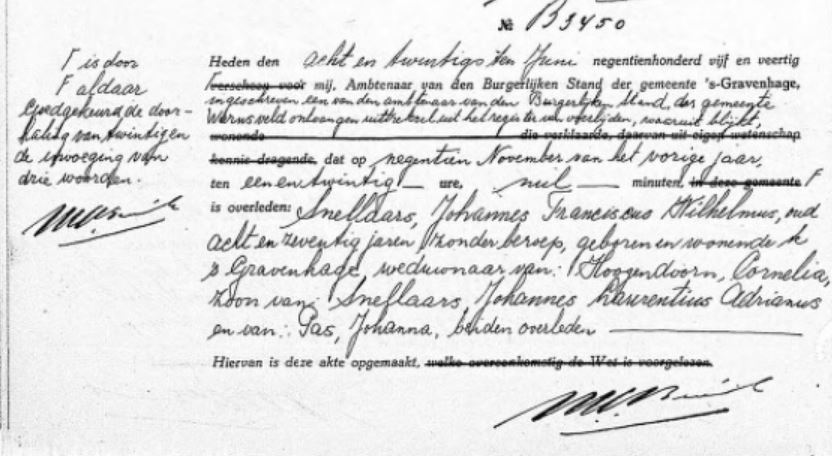 № B3450
Heden den acht en twintigsten Juni negentienhonderd vijf en veertig
F verscheen voor mij, Ambtenaar van den Burgerlijken Stand der gemeente 's-Gravenhage,
ingeschreven een van den ambtenaar van den Burgerlijken Stand der gemeente
Warnsveld ontvangen uittreksel uit het register van overlijden, waaruit blijkt,
wonende die verklaarde, daarvan uit eigen wetenschap
kennis dragende, dat op negentien November van het vorige jaar,
ten een en twintig ure, nul minuten, in deze gemeente F
is overleden: Snellaars, Johannes Franciscus Wilhelmus, oud
acht en zeventig jaren, zonder beroep, geboren en wonende te
's Gravenhage, weduwnaar van: Hoogendoorn, Cornelia,
zoon van: Snellaars, Johannes Laurentius Adrianus
en van: Pas, Johanna, beiden overleden
Hiervan is deze akte opgemaakt, welke overeenkomstig de Wet is voorgelezen.
F is door
F aldaar
Goedgekeurd de door-
haling van twintig en
de invoeging van
drie woorden.